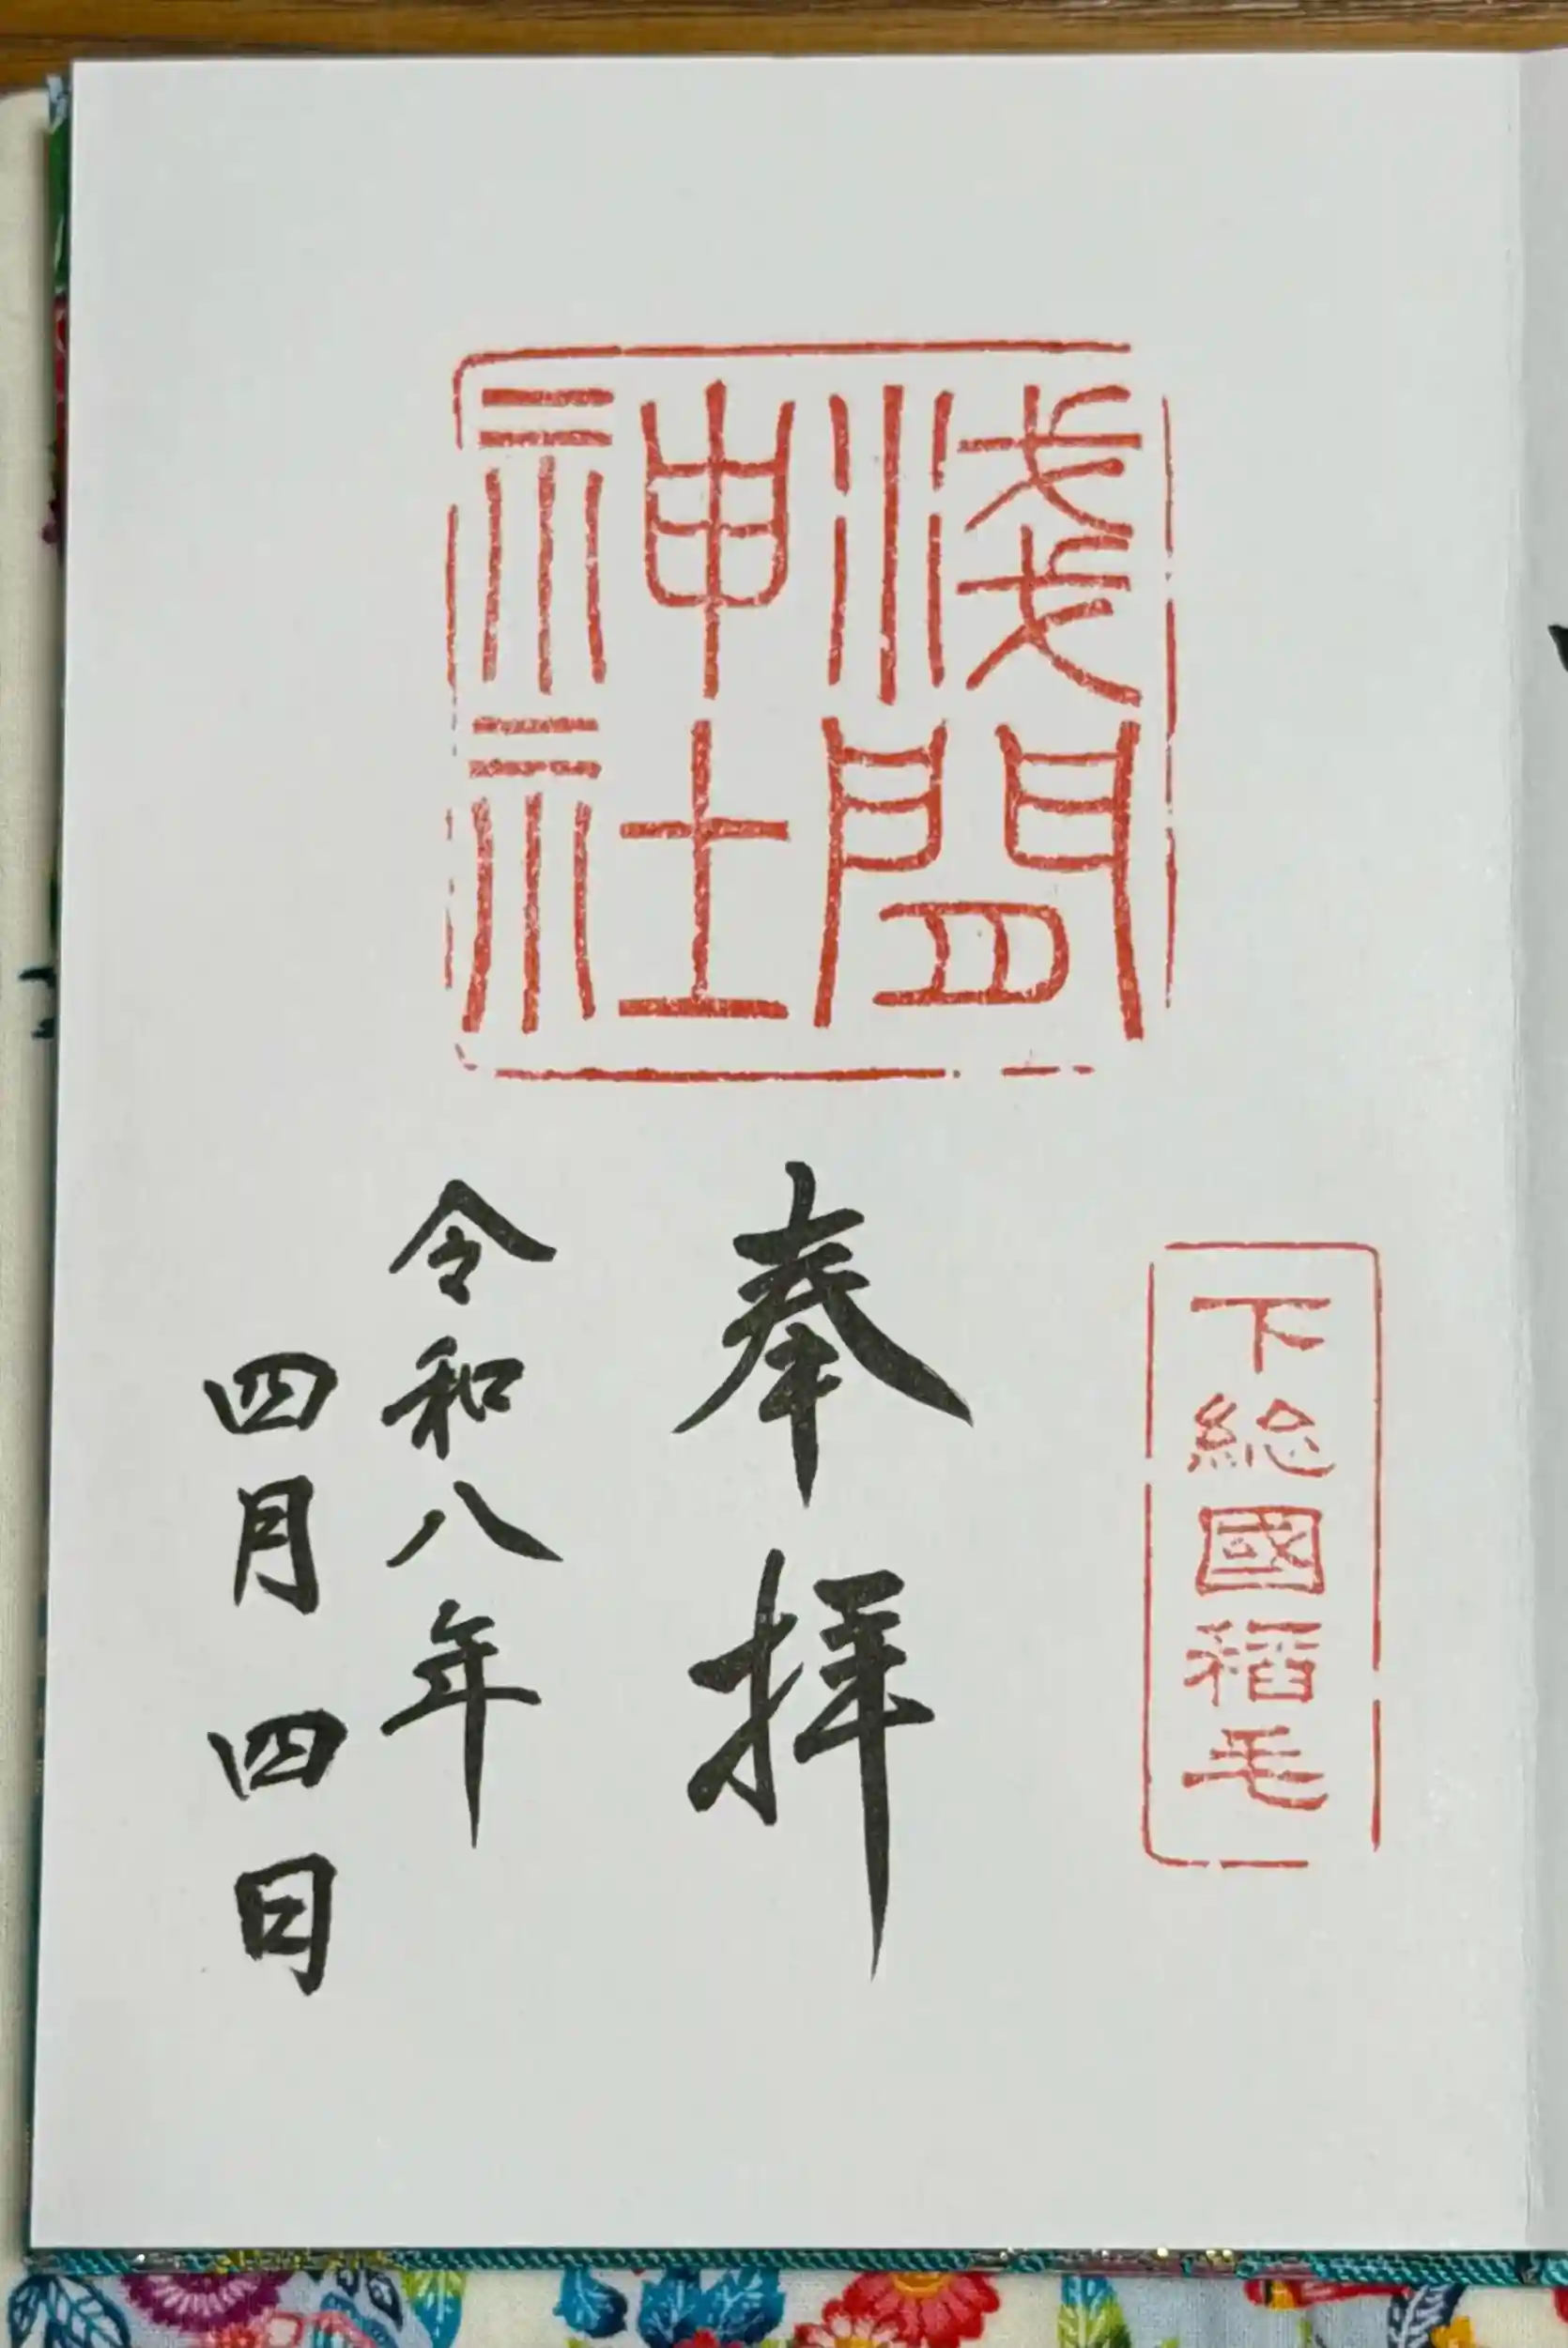 下総國稲毛
淺間
神社
奉拝
令和八年
四月四日